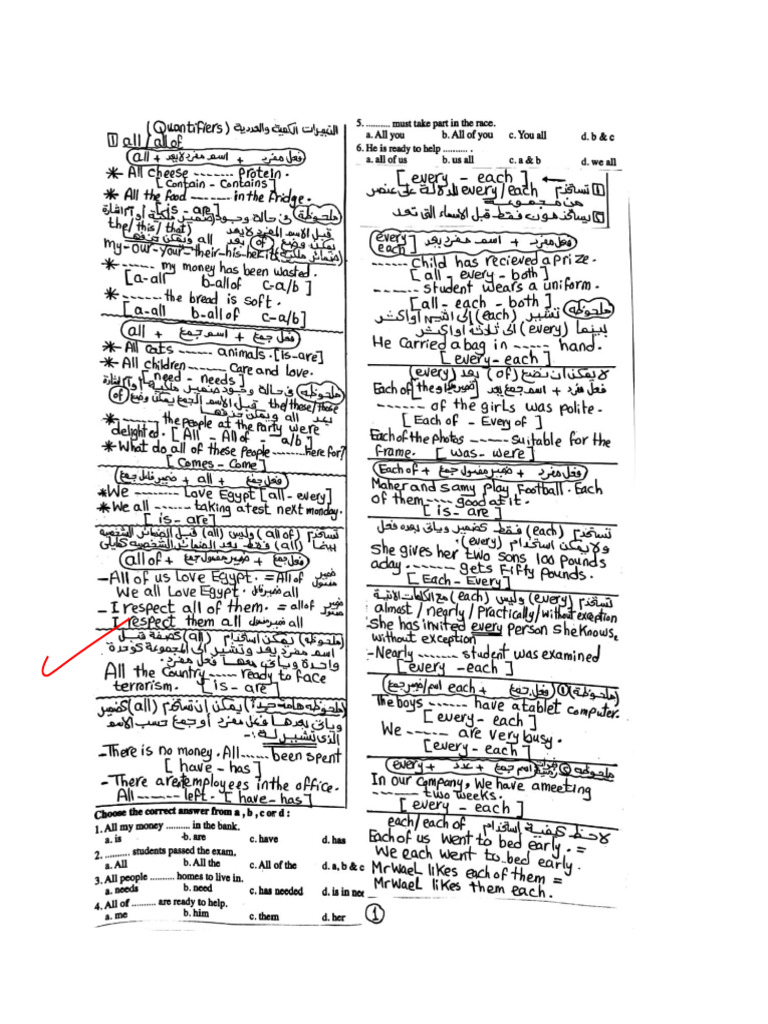 (Quantifiers) التعبيرات الكمية والعددية
1 all / all of
all + اسم مفرد لا يعد + فعل مفرد
* All cheese ........ protein.
[Contain - Contains]
* All the food ........ in the fridge.
[is - are] ملحوظة
(the/this/that) قبل الاسم المفرد لا يعد
يمكن وضع (of) بعد all ويمكن حذفها
my-our-your-their-his-her-its
* ...... my money has been wasted.
[a-all b-all of c-a/b]
* ...... the bread is soft.
[a-all b-all of c-a/b]
all + اسم جمع + فعل جمع
* All cats ...... animals. [is-are]
* All children ...... care and love.
[need - needs] ملحوظة
the/these/those قبل الاسم الجمع يمكن وضع of
بعد all ويمكن حذفها
* ...... the people at the party were
delighted. [All - All of - a/b]
* What do all of these people ...... here for?
[Comes - Come]
ضمير فاعل جمع + all + فعل جمع
* We ........ Love Egypt [all - every]
* We all ...... taking a test next monday.
[is - are]
all of + ضمير مفعول جمع + فعل جمع
- All of us Love Egypt. = All of ضمير مفعول
We all Love Egypt. ضمير فاعل all
- I respect all of them. = all of ضمير مفعول
I respect them all ضمير مفعول all
(ملحوظة) يمكن استخدام (all) كصفة قبل
اسم مفرد يعد وتشير الى المجموعة كوحدة
واحدة وياتى معها فعل مفرد.
All the Country ...... ready to face
terrorism. [is - are]
(ملحوظة هامة جدا) يمكن ان تستخدم (all) كضمير
وياتى بعدها فعل مفرد أو جمع حسب الاسم
الذى تشير له :-
- There is no money. All ...... been spent
[have - has]
- There are employees in the office.
All ...... left. [have - has]
Choose the correct answer from a , b , c or d :
1. All my money .......... in the bank.
a. is b. are c. have d. has
2. .......... students passed the exam.
a. All b. All the c. All of the d. a, b & c
3. All people .......... homes to live in.
a. needs b. need c. has needed d. is in nee
4. All of .......... are ready to help.
a. me b. him c. them d. her
5. .......... must take part in the race.
a. All you b. All of you c. You all d. b & c
6. He is ready to help .......... .
a. all of us b. us all c. a & b d. we all
[every - each]
1 تستخدم every/each للدلالة على عنصر
من مجموعة
2 يستخدمون فقط قبل الاسماء التى تعد
every each اسم مفرد يعد + فعل مفرد
...... Child has recieved a prize.
[all - every - both]
...... student wears a uniform.
[all - each - both] ملحوظة
تشير (each) الى اثنين او اكثر
بينما (every) الى ثلاثة او اكثر
He carried a bag in ...... hand.
[every - each]
لا يمكن ان نضع (of) بعد (every)
Each of اسم جمع يعد + فعل مفرد
...... of the girls was polite.
[Each of - Every of]
Each of the photos ...... suitable for the
frame. [was - were]
Each of + ضمير مفعول جمع + فعل مفرد
Maher and samy play football. Each
of them ..... good at it.
[is - are]
تستخدم (each) فقط كضمير وياتى بعده فعل
ولا يمكن استخدام (every).
She gives her two sons 100 pounds
a day. ...... gets fifty pounds.
[Each - Every]
تستخدم (every) وليس (each) مع الكلمات الاتية
almost / nearly / Practically / without exception
She has invited every person she knows,
without exception
- Nearly ...... student was examined
[every - each]
(ملحوظة) 1 اسم/ضمير جمع + each + فعل جمع
The boys ...... have a tablet computer.
[every - each]
We ...... are very busy.
[every - each]
ملحوظة 2 every + عدد + اسم جمع
In our company, We have a meeting
...... two weeks.
[every - each]
لاحظ كيفية استخدام each/each of
Each of us went to bed early. =
We each went to bed early.
Mr Wael likes each of them =
Mr Wael likes them each.
1